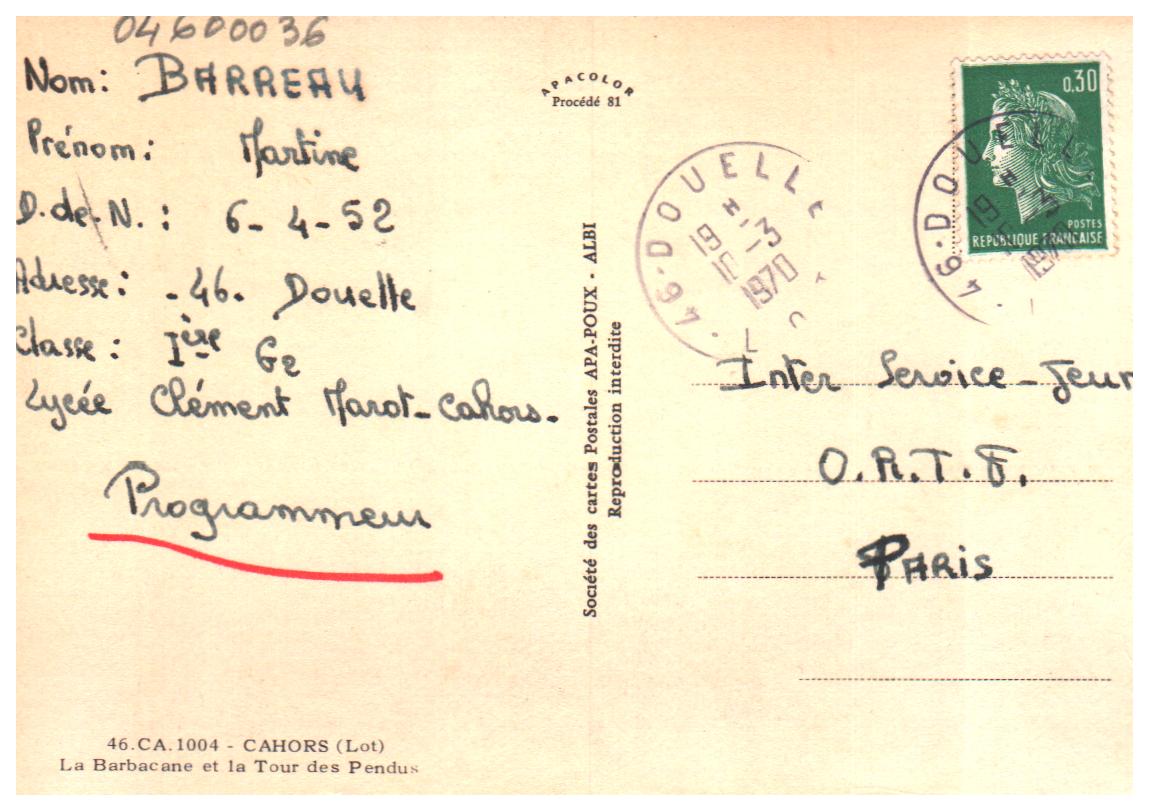 04600036
Nom: BARREAU
Prénom: Martine
D.de.N. : 6-4-52
Adresse: -46. Douelle
Classe: Ière G2
Lycée Clément Marot-Cahors-
Programmeur
46.CA.1004 - CAHORS (Lot)
La Barbacane et la Tour des Pendus
APACOLOR
Procédé 81
Société des cartes Postales APA-POUX - ALBI
Reproduction interdite
46·DOUELLE
1970
0,30
POSTES
REPUBLIQUE FRANÇAISE
46·DOUELL
1970
Inter Service-Jeun
O.R.T.F.
PARIS